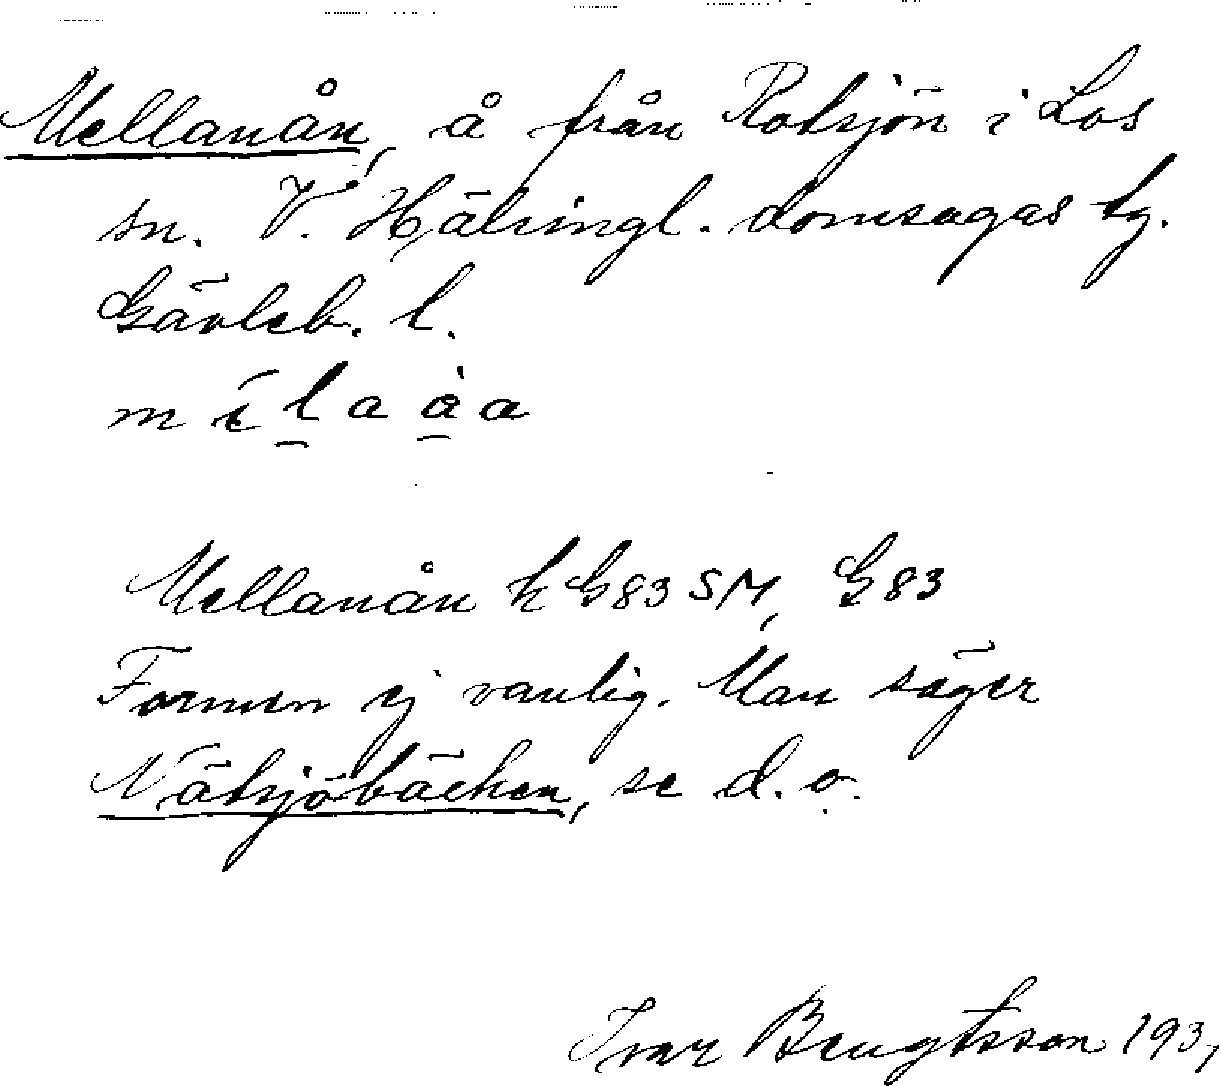 Mellanån, å från Rotsjön i Los
sn. V. Hälsingl. domsagas tg.
Gävleb. l.
Mellanån k G83 SM, G83
Formen ej vanlig. Man säger
Nätsjöbäcken, se d. o.
Ivar Bengtsson 193